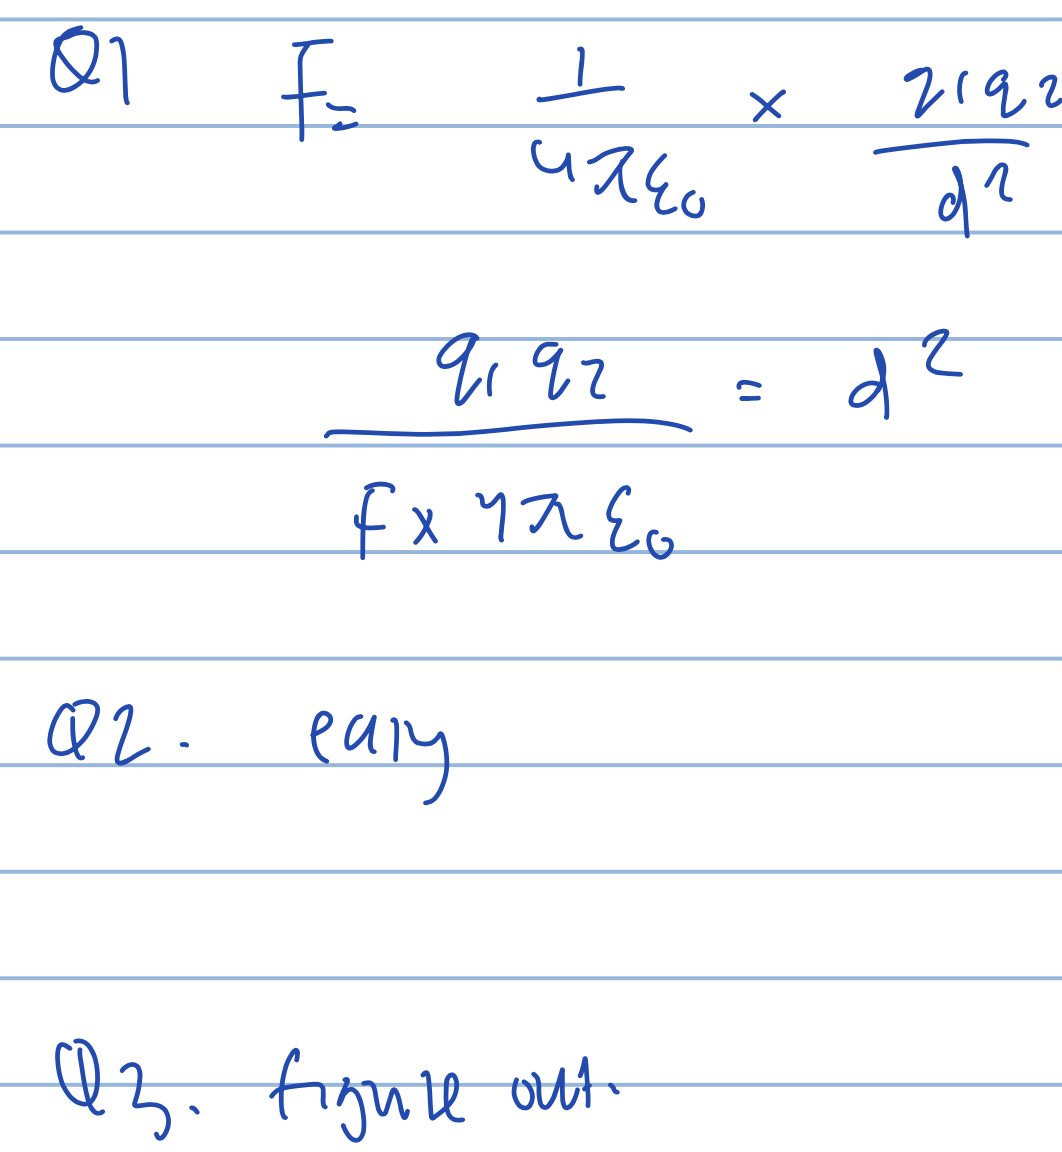 Q1 F = 1/4πε₀ × q₁q₂/d²
q₁q₂/F×4πε₀ = d²
Q2. easy
Q3. figure out.